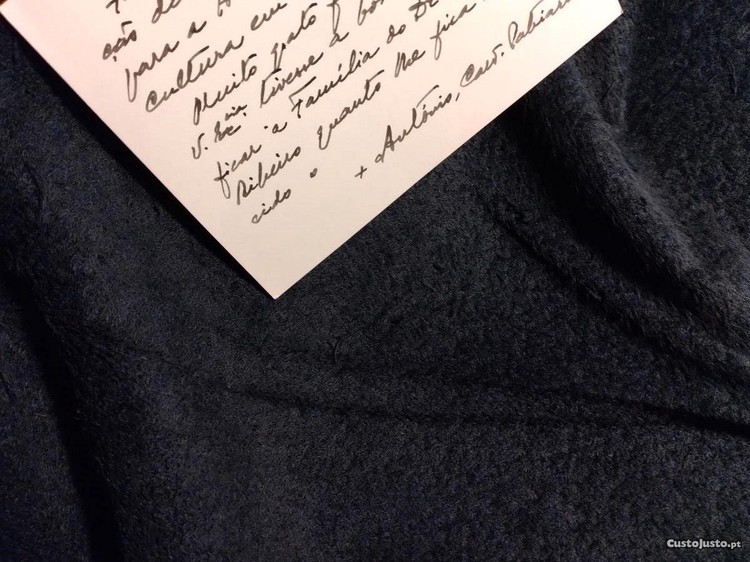 ção de
para a
cultura em
Muito grato
V. Exᶜⁱᵃ. tivesse a bon
ficar a Família do Dr
Ribeiro quanto me fica
cido.
+ António, Card. Patriar
CustoJusto.pt